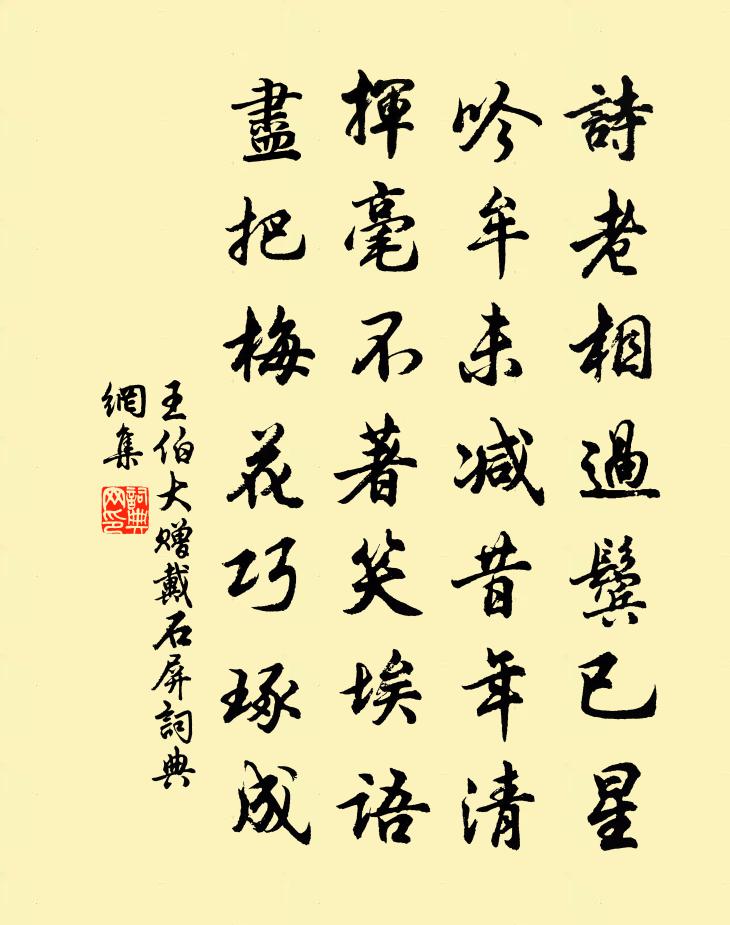 詩老相過鬢已星
吟牟未減昔年清
揮毫不著笑埃語
盡把梅花巧琢成
王伯大赠戴石屏詞典
網集
詞典
网印